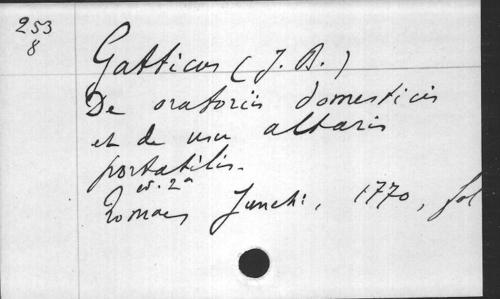 253
8
Gatticus (J. B.)
De oratoriis domesticis
et de usu altaris
portatilis.
ed. 2ª
Romae, Junchi, 1770, fol